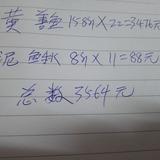 黄 鳝 158斤×22=3476元
泥 鳅 8斤×11=88元
总数3564元